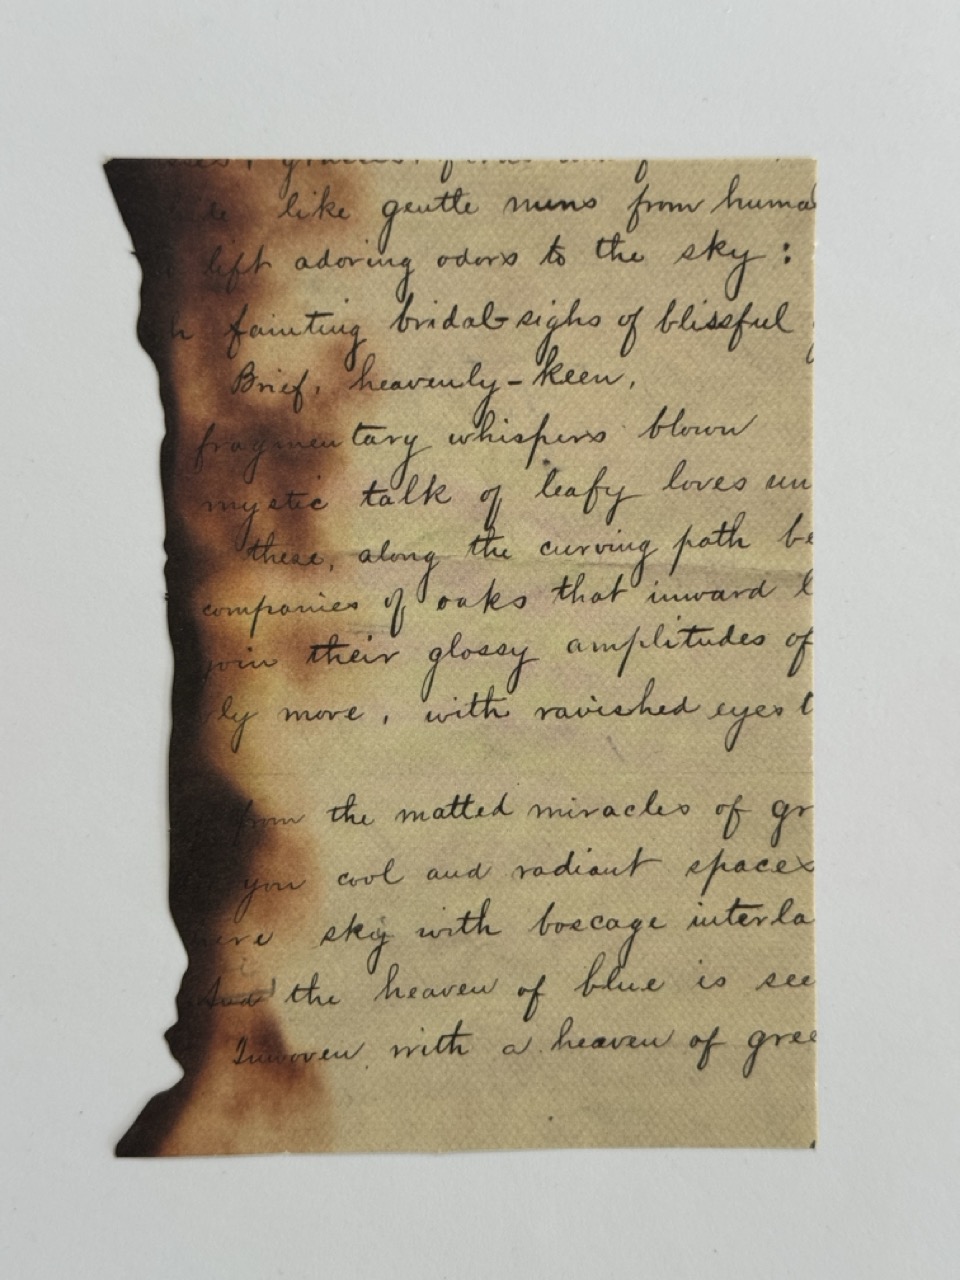 like gentle nuns from huma
lift adoring odors to the sky :
fainting bridal-sighs of blissful
Brief, heavenly-keen,
fragmentary whispers blown
mystic talk of leafy loves un
these, along the curving path be
companies of oaks that inward l
join their glossy amplitudes of
ly move, with ravished eyes t
from the matted miracles of gr
you cool and radiant spaces
ere sky with boscage interla
And the heaven of blue is see
Inwoven with a heaven of gree